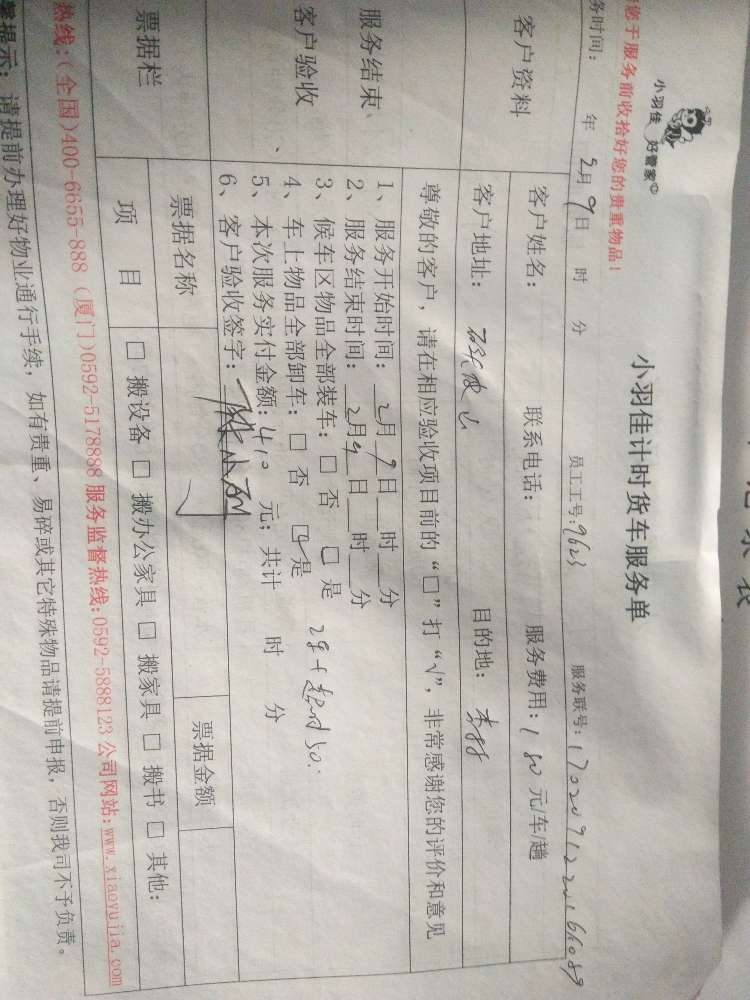 记录表
小羽佳计时货车服务单
小羽佳 好管家
您于服务前收拾好您的贵重物品！
务时间： 年 2月 9日 时 分 员工工号：9623 服务联号：
客户资料 客户姓名： 联系电话： 服务费用：180 元/车/趟
客户地址： 目的地：
尊敬的客户，请在相应验收项目前的“□”打“√”，非常感谢您的评价和意见
服务结束、
客户验收、
1、服务开始时间：2月9日 时 分
2、服务结束时间：2月9日 时 分
3、候车区物品全部装车：□ 否 □ 是
4、车上物品全部卸车：□ 否 □ 是
5、本次服务实付金额：410 元；共计 时 分
6、客户验收签字：
票据栏 票据名称 票据金额
项 目 □ 搬设备 □ 搬办公家具 □ 搬家具 □ 搬书 □ 其他：
热线：(全国)400-6655-888 (厦门)0592-5178888 服务监督热线：0592-5888123 公司网站：www.xiaoyujia.com
提示：请提前办理好物业通行手续，如有贵重、易碎或其它特殊物品请提前申报，否则我司不予负责。